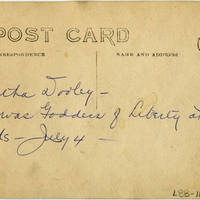 POST CARD
CORRESPONDENCE NAME AND ADDRESS
tha Dooley –
was Goddess of Liberty at
ds – July 4 –
L88-